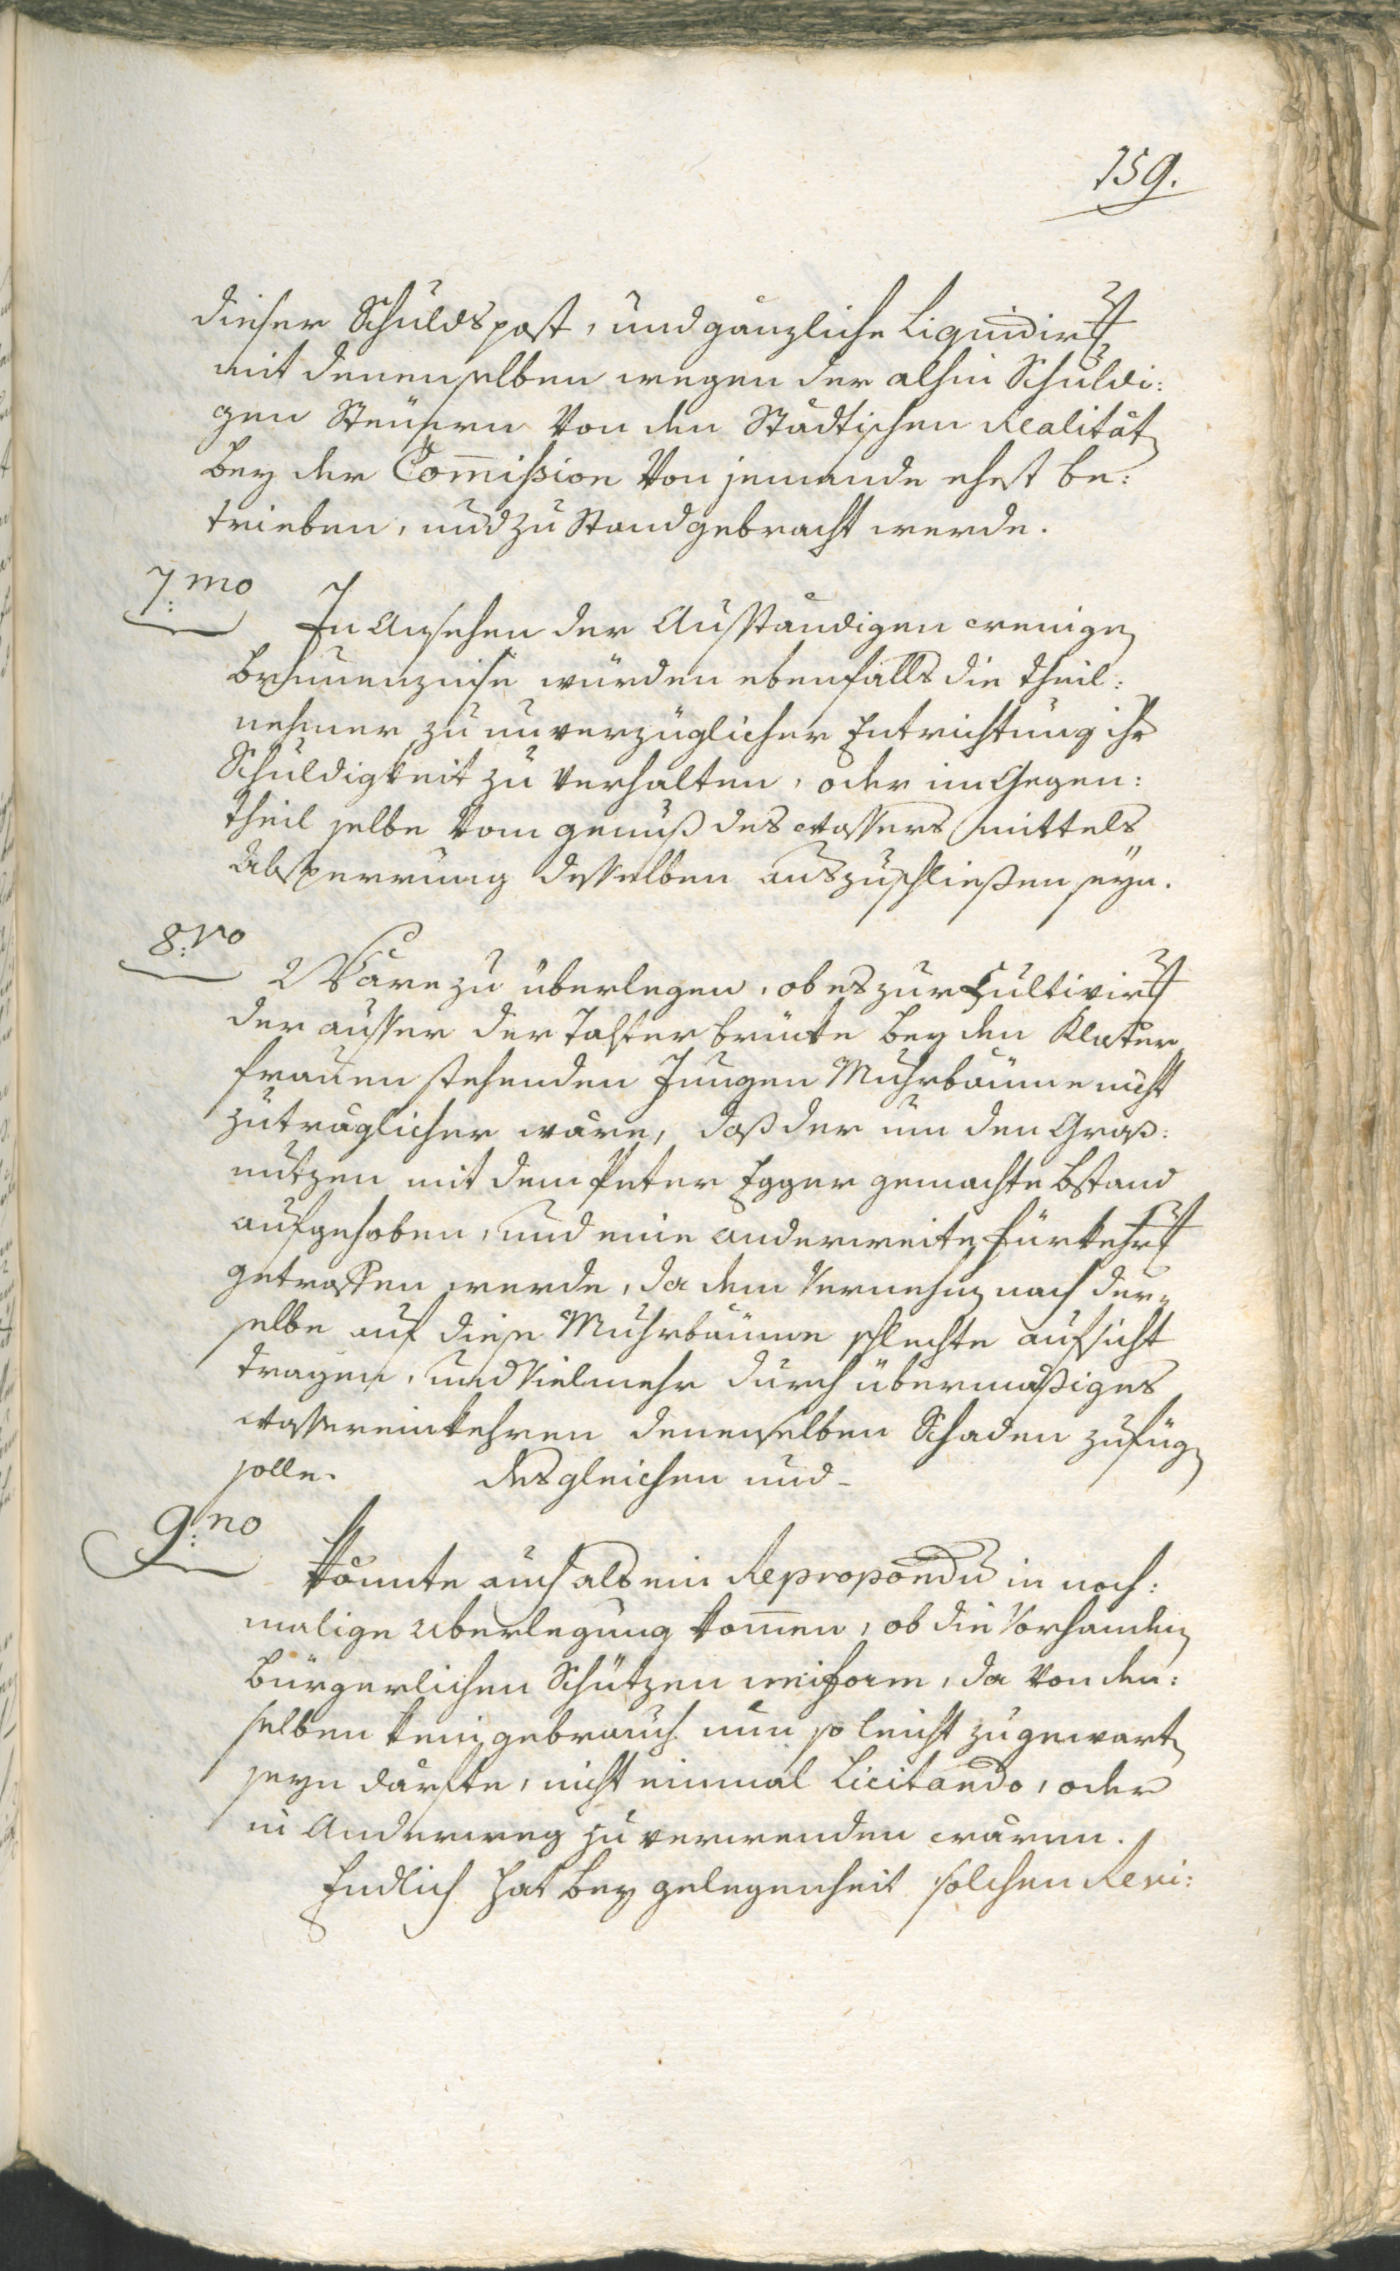 159.
dieser Schuldspost, und gänzliche Liquidirung
mit denenselben wegen der alhin Schuldi:
gen Steuern von den Stadtischen Realitäten
bey der Commißion von jemande ehest be:
trieben, und zu Stand gebracht werde.
7:mo In Ansehen der Ausständigen wenigen
Brunenzinse würden ebenfalls die theil:
nehmer zu unverzüglicher Entrichtung ihr
Schuldigkeit zu verhalten, oder im Gegen:
theil selbe vom genuß des wassers mittels
Absperrung desselben auszuschließen seyn.
8:vo Ware zu überlegen, ob es zur Cultivirung
der ausser der Talferbrücke bey den Kloster
frauen stehenden Jungen Muhrbäume nicht
zuträglicher wäre, daß der um den Graß:
nutzen mit dem Peter Egger gemachte bstand
aufgehoben, und eine anderweite fürkehrung
getroffen werde, da dem Vernehmen nach der=
selbe auf diese Muhrbäume schlechte aufsicht
tragen, und vielmehr durch übermäßiges
wassereinkehren denenselben Schaden zufügen
solle. desgleichen und-
9:no könnte auch als ein Repropondu in noch:
malige uberlegung kommen, ob die vorhandenen
bürgerlichen Schützen uniform, da von den:
selben kein gebrauch nun so leicht zu gewarten
seyn därfte, nicht einmal Licitando, oder
in Anderweg zu verwenden wären.
Endlich hat bey gelegenheit solchen Revi: